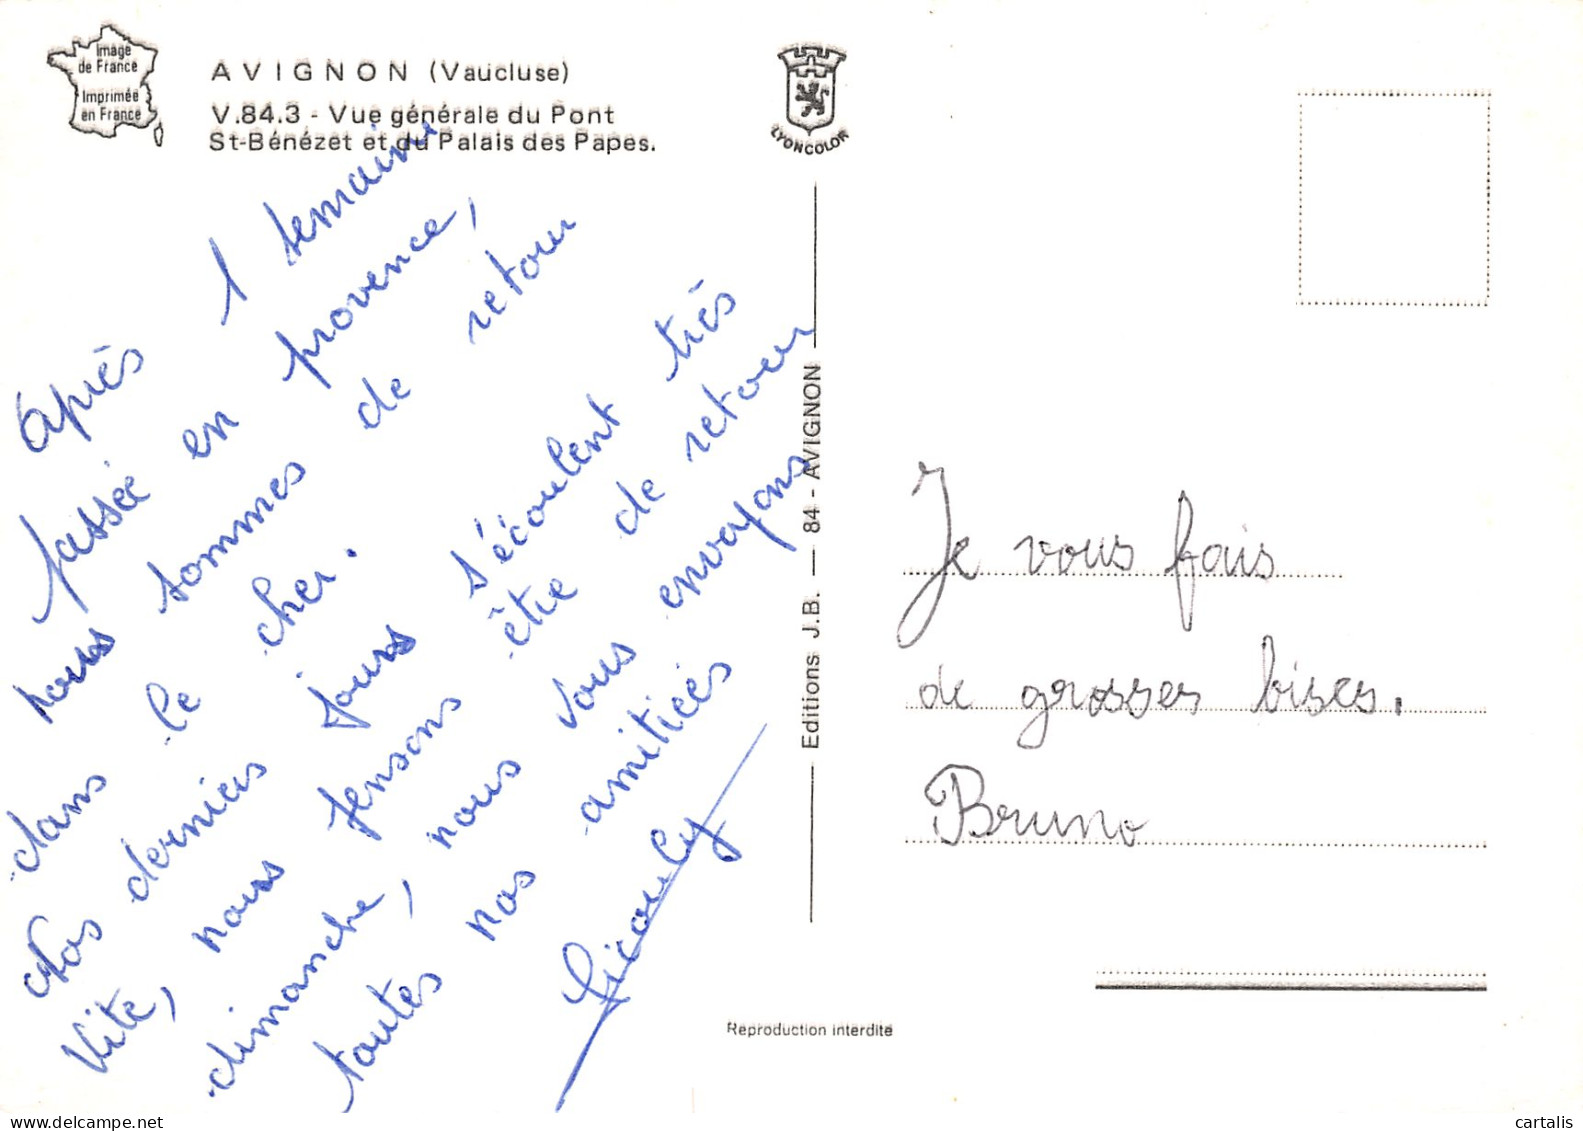 Image
de France
Imprimée
en France
AVIGNON (Vaucluse)
V.84.3 - Vue générale du Pont
St-Bénézet et du Palais des Papes.
LYONCOLOR
après 1 semaine
passée en provence,
nous sommes de retour
dans le cher.
Nos derniers jours s'écoulent très
vite, nous pensons être de retour
dimanche, nous vous envoyons
toutes nos amitiées
Editions J.B. — 84 - AVIGNON
Je vous fais
de grosses bises.
Bruno
Reproduction interdite
delcampe.net
cartalis